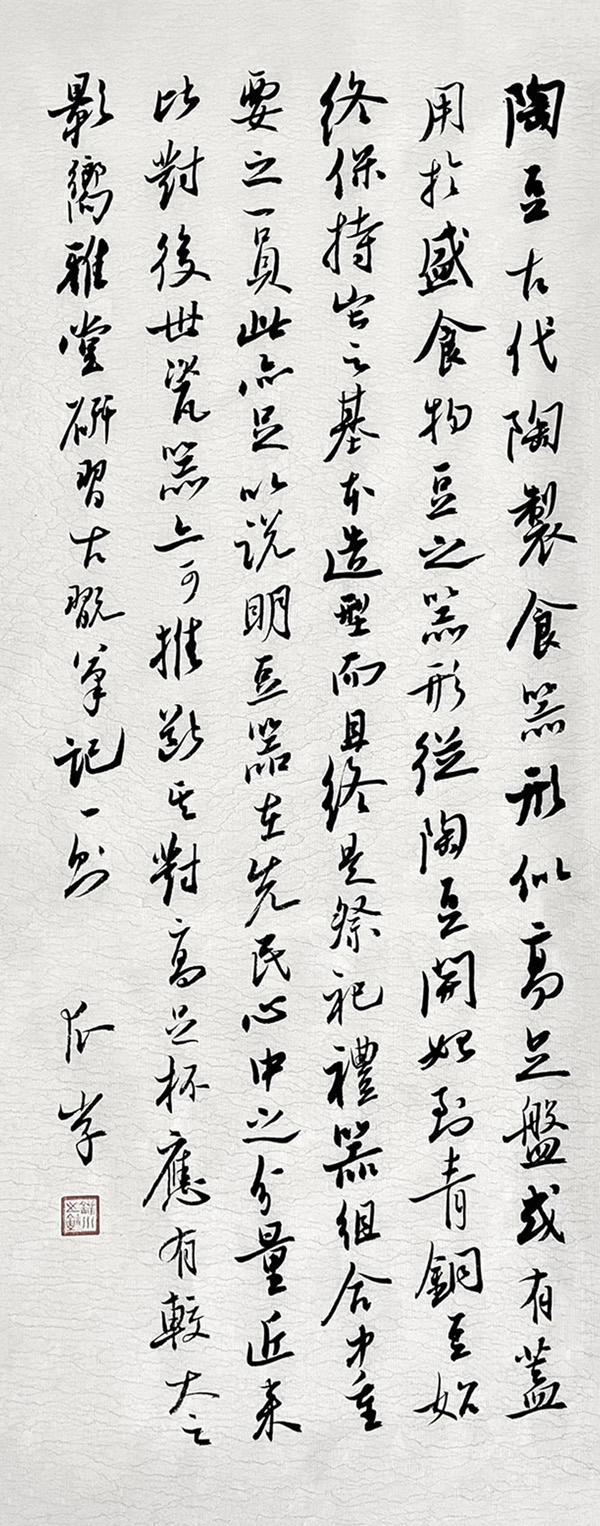 陶豆古代陶製食器形似高足盤或有蓋
用於盛食物豆之器形從陶豆開始到青銅豆始
終保持它之基本造型而且終是祭祀禮器組合中重
要之一員此亦足以説明豆器在先民心中之分量近来
比對後世瓷器上可推斷其對高足杯應有較大之
影嚮雅堂研習古翫筆記一则